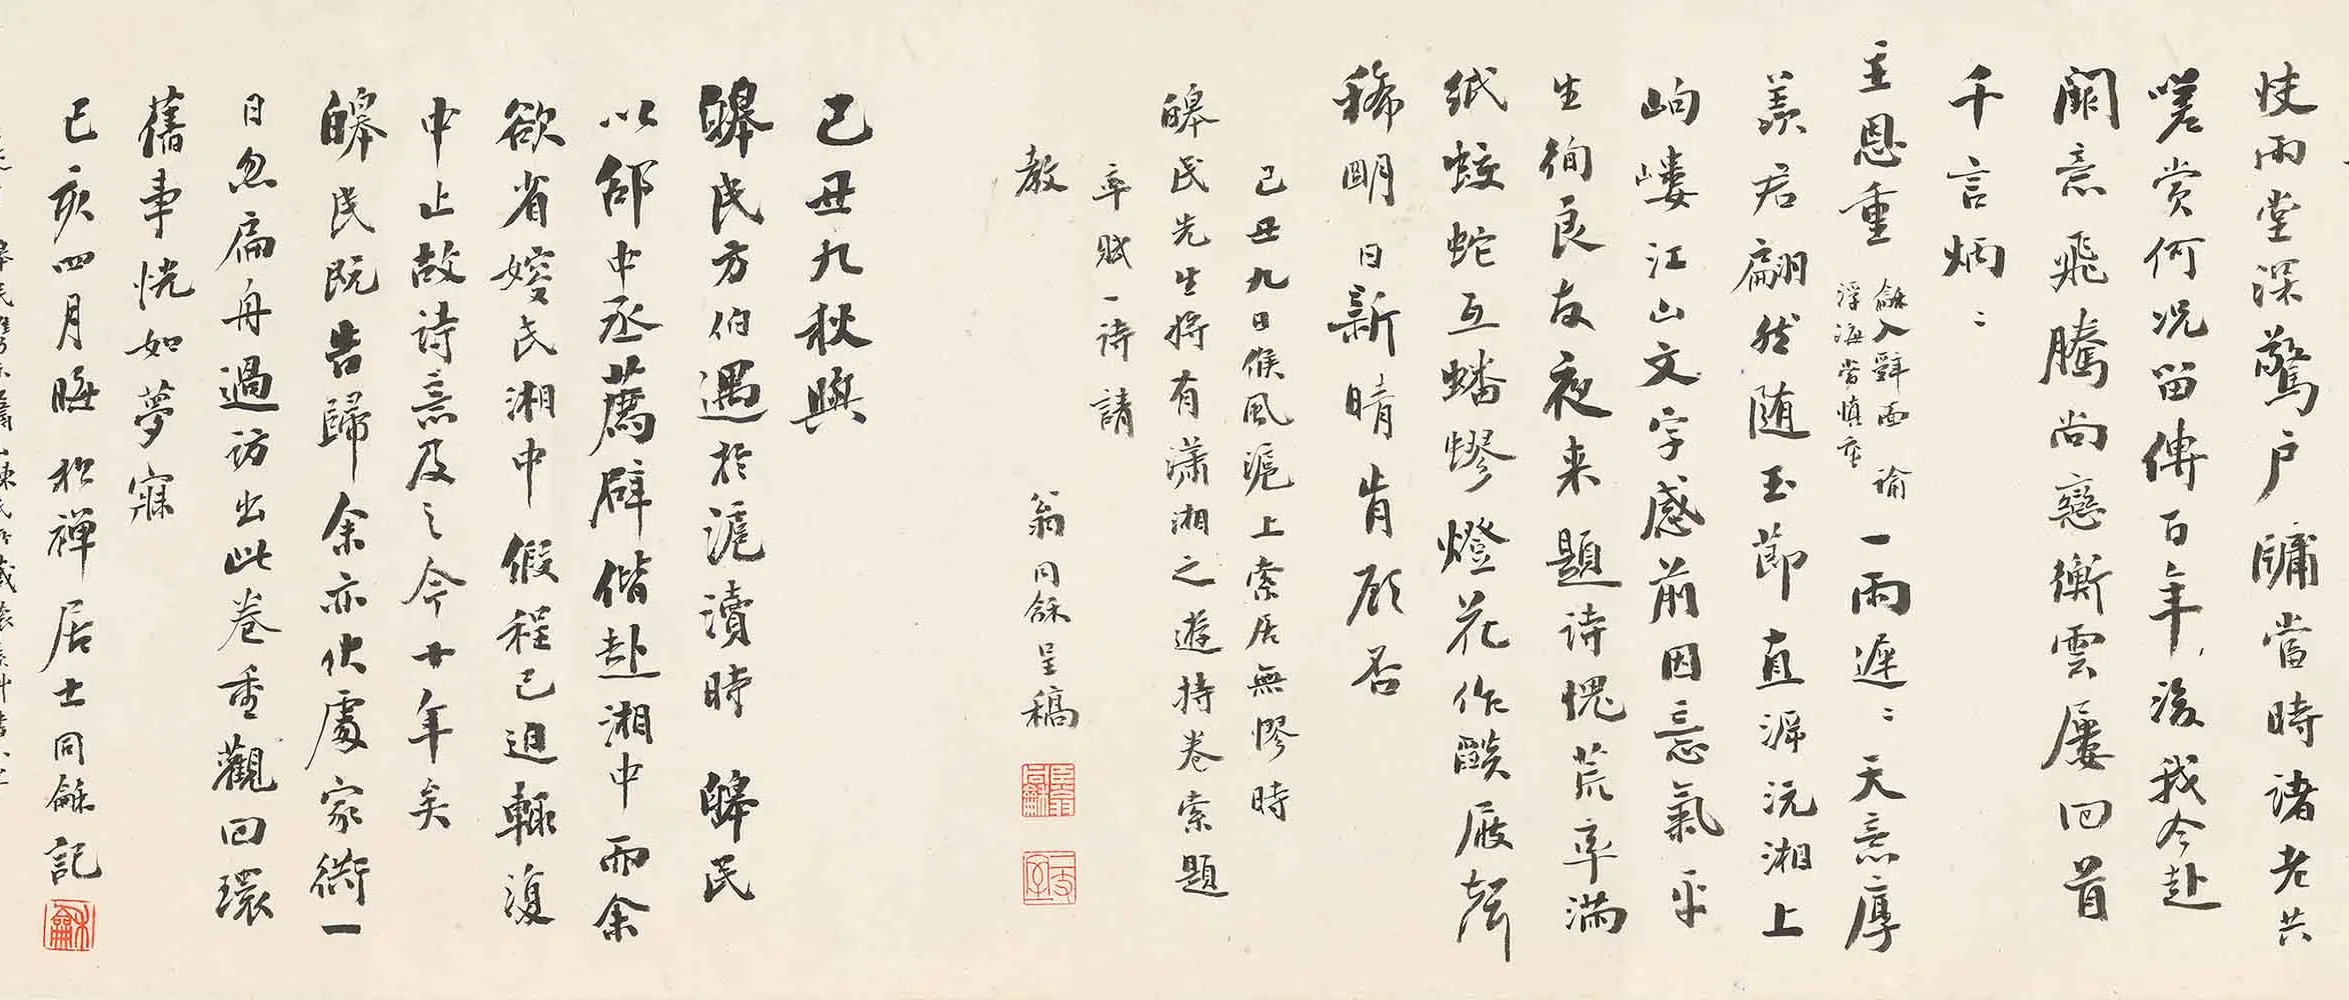 忮雨堂深驚户牖當時諸老共
嗟賞何況留傳百年後我今赴
闕意飛騰尚戀衡雲屢回首
千言炳〻
主恩重龢入辭面諭浮海當慎重一雨遲〻天意厚
羨君翩然随玉節直溯沅湘上
岣嶁江山文字感前因忘氣平
生徇良友夜来題詩愧荒率滿
紙蛟蛇互蟠蟉燈花作燄屐聲
稀明日新晴肯顧否
己丑九日候風滬上索居無憀時
皞民先生将有瀟湘之遊持卷索題
率賦一詩請
教
翁同龢呈稿
己丑九秋與
皞民方伯遇於滬瀆時皞民
以邵中丞薦辟偕赴湘中而余
欲省嫂氏湘中假程已迫輒復
中止故詩意及之今十年矣
皞民既告歸余亦伏處家衖一
日忽扁舟過訪出此卷重觀回環
舊事恍如夢寐
己亥四月晦松禅居士同龢記